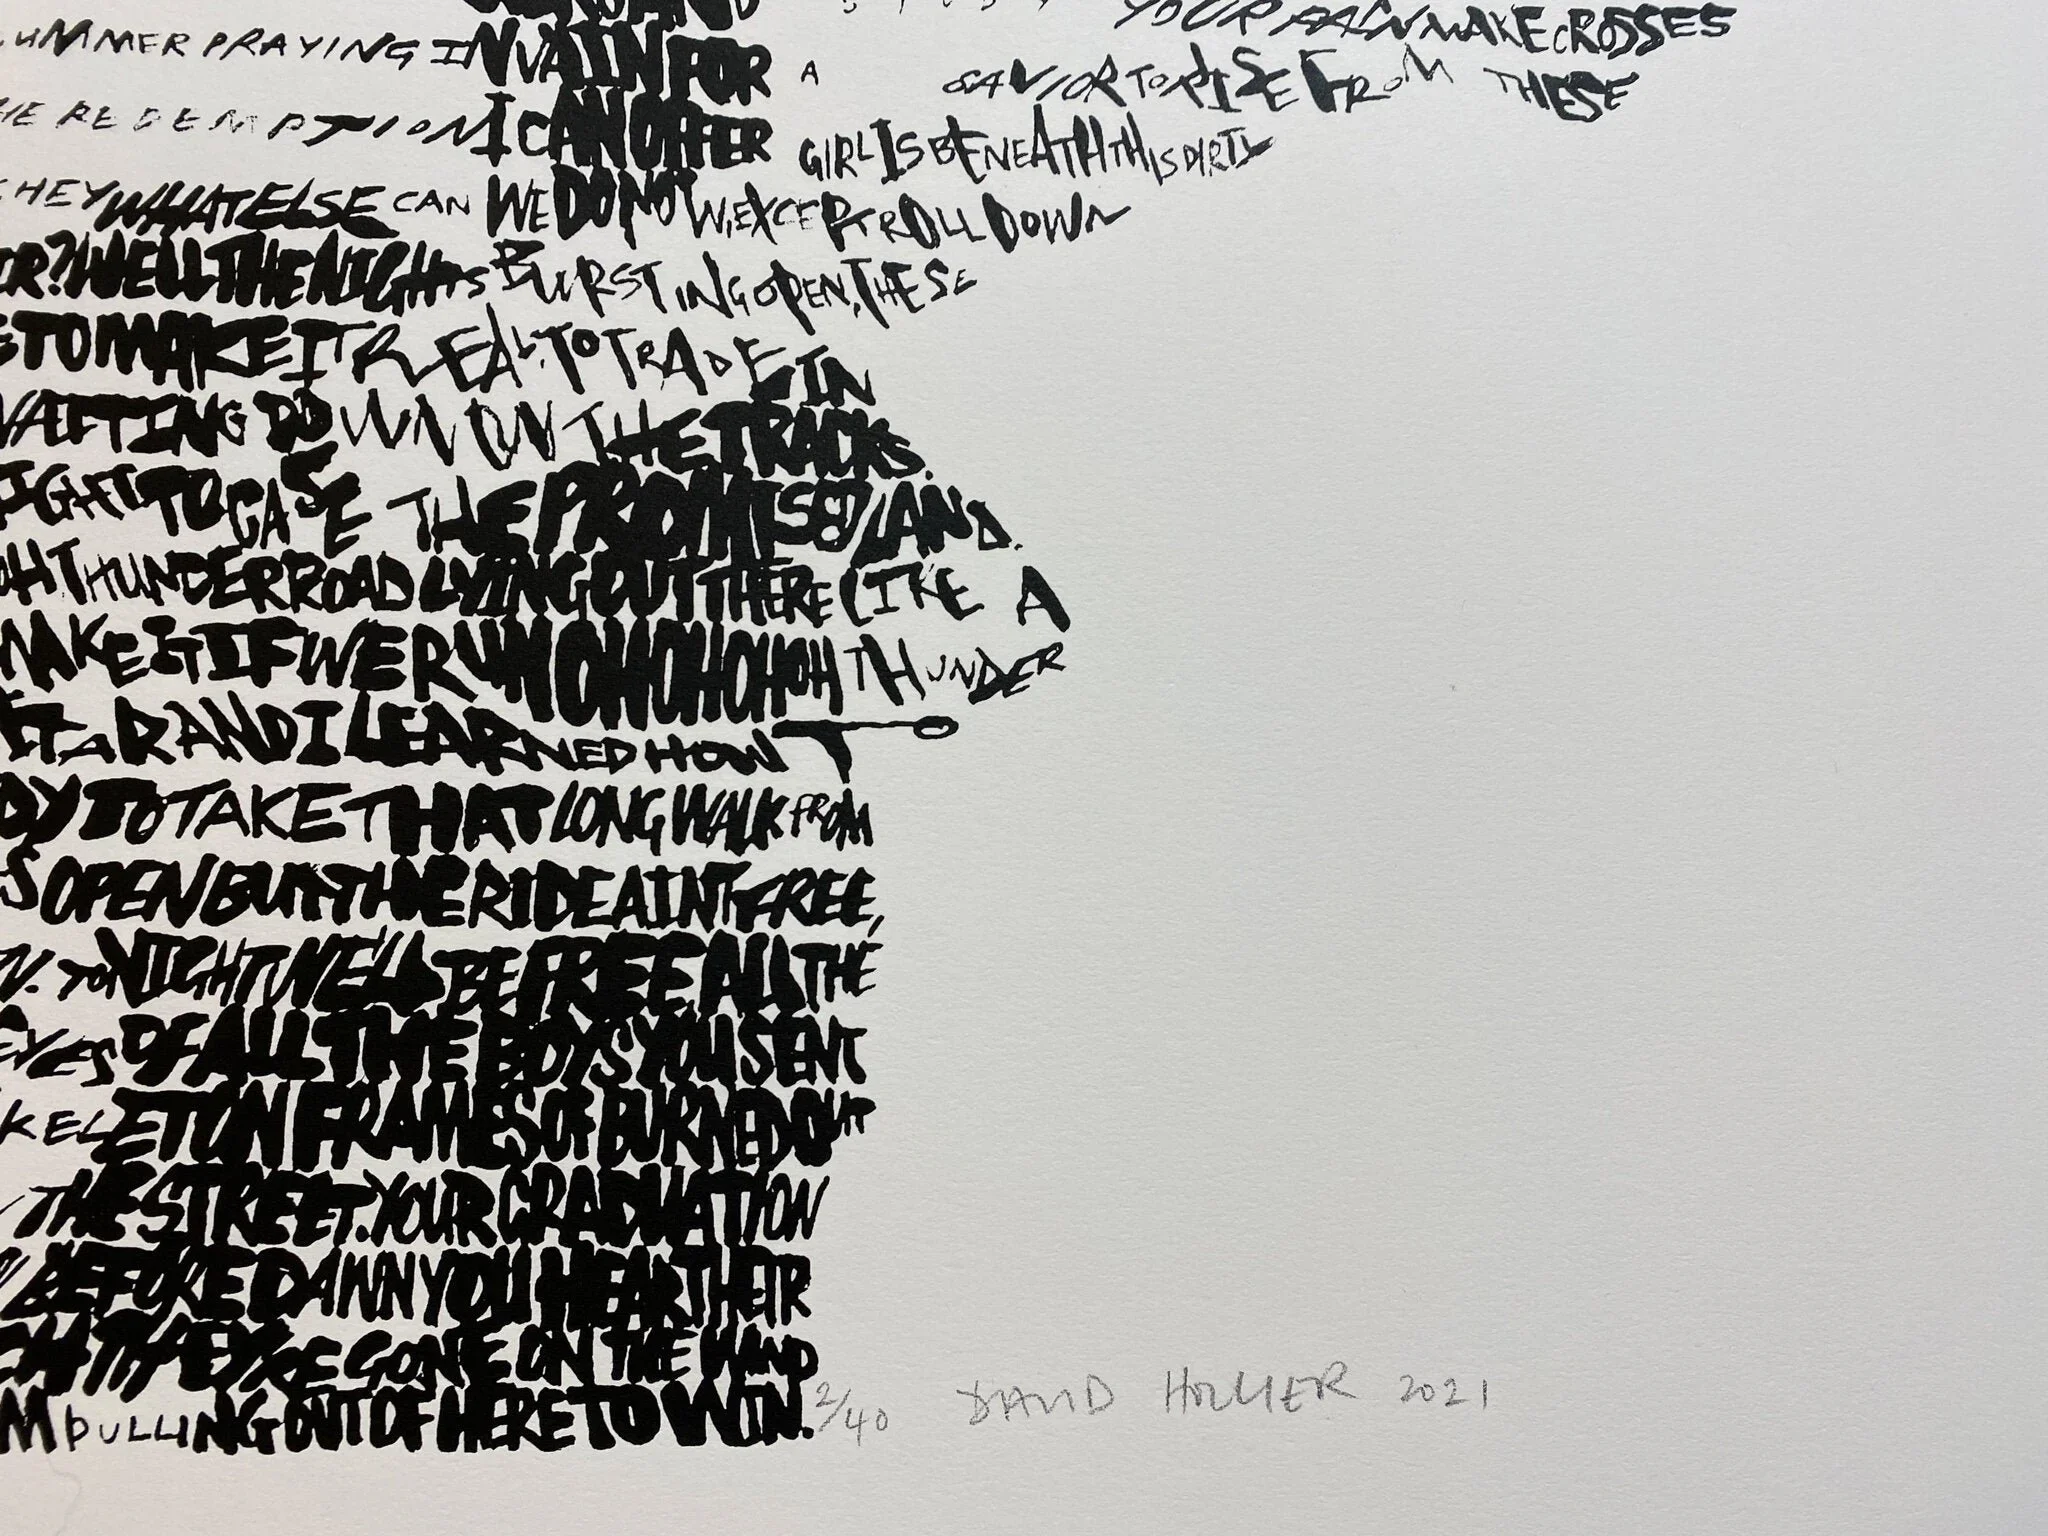 YOUR PAIN MAKE CROSSES
SUMMER PRAYING IN VAIN FOR A SAVIOR TO RISE FROM THESE
THE REDEMPTION I CAN OFFER GIRL IS BENEATH THIS DIRTY
HEY WHAT ELSE CAN WE DO NOW, EXCEPT ROLL DOWN
R? WELL THE NIGHTS BURSTING OPEN, THESE
E TO MAKE IT REAL. TO TRADE IN
WAITING DOWN ON THE TRACKS.
IGHT TO CASE THE PROMISED LAND.
OH THUNDER ROAD LYING OUT THERE LIKE A
MAKE IT IF WE RUN OH OH OH OH THUNDER
ITAR AND I LEARNED HOW TO
DY TO TAKE THAT LONG WALK FROM
S OPEN BUT THE RIDE AINT FREE,
N. TONIGHT WE'LL BE FREE ALL THE
EYES OF ALL THE BOYS YOU SENT
KELETON FRAMES OF BURNED OUT
THE STREET. YOUR GRADUATION
BEFORE DAWN YOU HEAR THEIR
CH THEY'RE GONE ON THE WIND
M PULLING OUT OF HERE TO WIN.
2/40 DAVID HOLLIER 2021